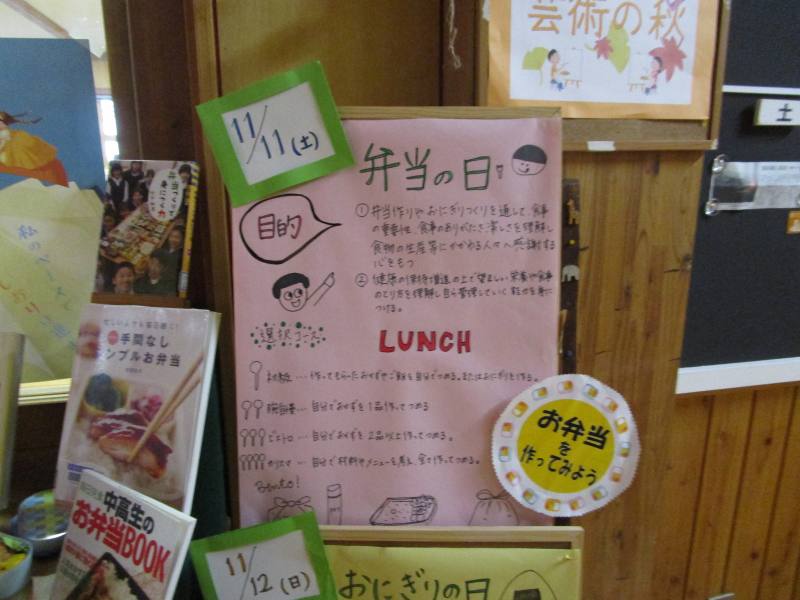 芸術の秋
土
11/11(土)
弁当の日!
目的
①弁当作りやおにぎりづくりを通して、食事
の重要性、食事のありがたさ、楽しさを理解し
食物の生産等にかかわる人々へ感謝する
心をもつ
②健康の保持増進の上で望ましい栄養や食事
のとり方を理解し自ら管理していく能力を身に
つける。
選択コース
LUNCH
…作ってもらったおかずやご飯を自分でつめる。またはおにぎりを作る。
腕自慢…自分でおかずを1品作ってつめる
…自分でおかずを2品以上作ってつめる。
カリスマ…自分で材料やメニューを考え、全て作ってつめる。
Bento!
お弁当
を
作ってみよう
11/12(日)
おにぎりの日
手間なし
シンプルお弁当
中高生の
お弁当BOOK